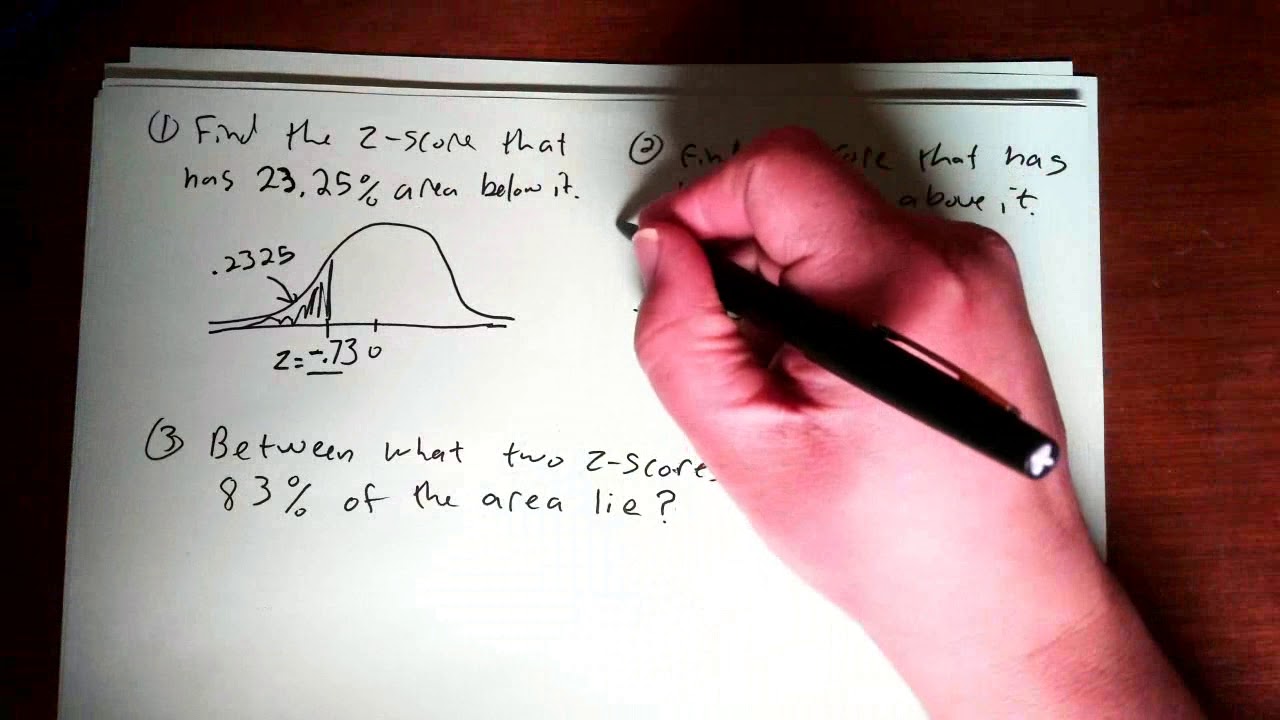 ① Find the z-score that
has 23.25% area below it.
.2325
z=-.73 0
② that has
above it.
③ Between what two z-score
83% of the area lie?